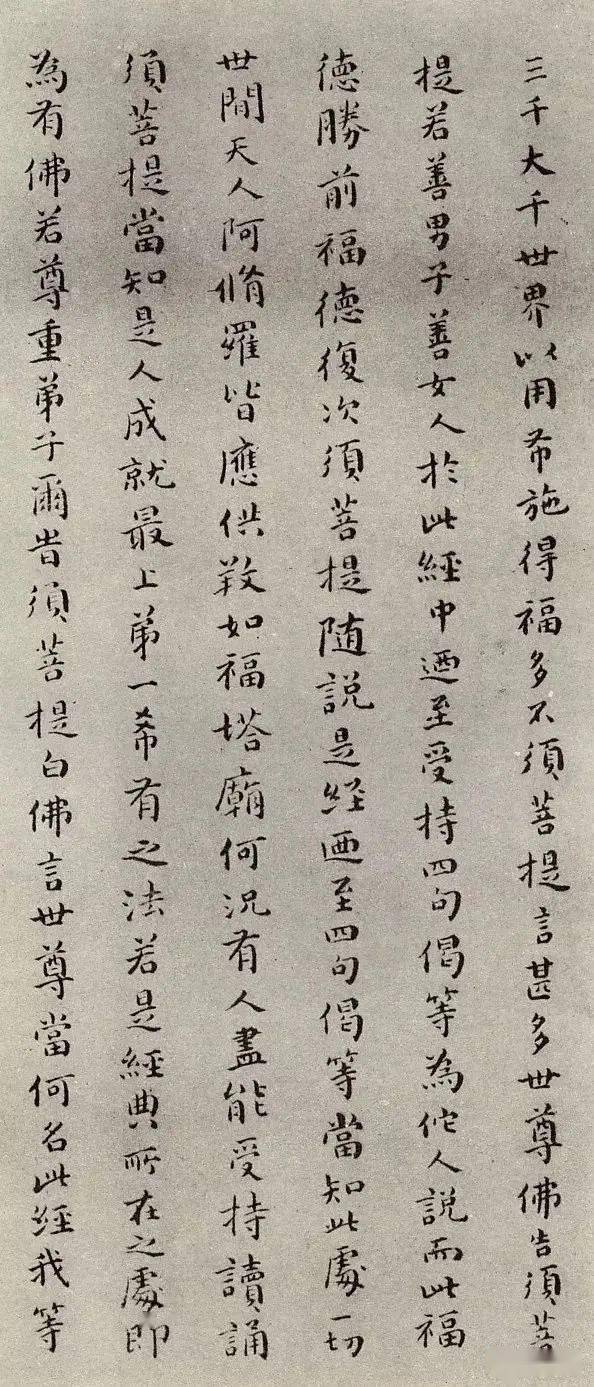 三千大千世界以用布施得福多不須菩提言甚多世尊佛告須菩
提若善男子善女人於此經中廼至受持四句偈等為佗人說而此福
德勝前福德復次須菩提随說是經廼至四句偈等當知此處一切
世間天人阿脩羅皆應供敬如福塔廟何況有人盡能受持讀誦
須菩提當知是人成就最上第一希有之法若是經典所在之處即
為有佛若尊重弟子爾時須菩提白佛言世尊當何名此經我等